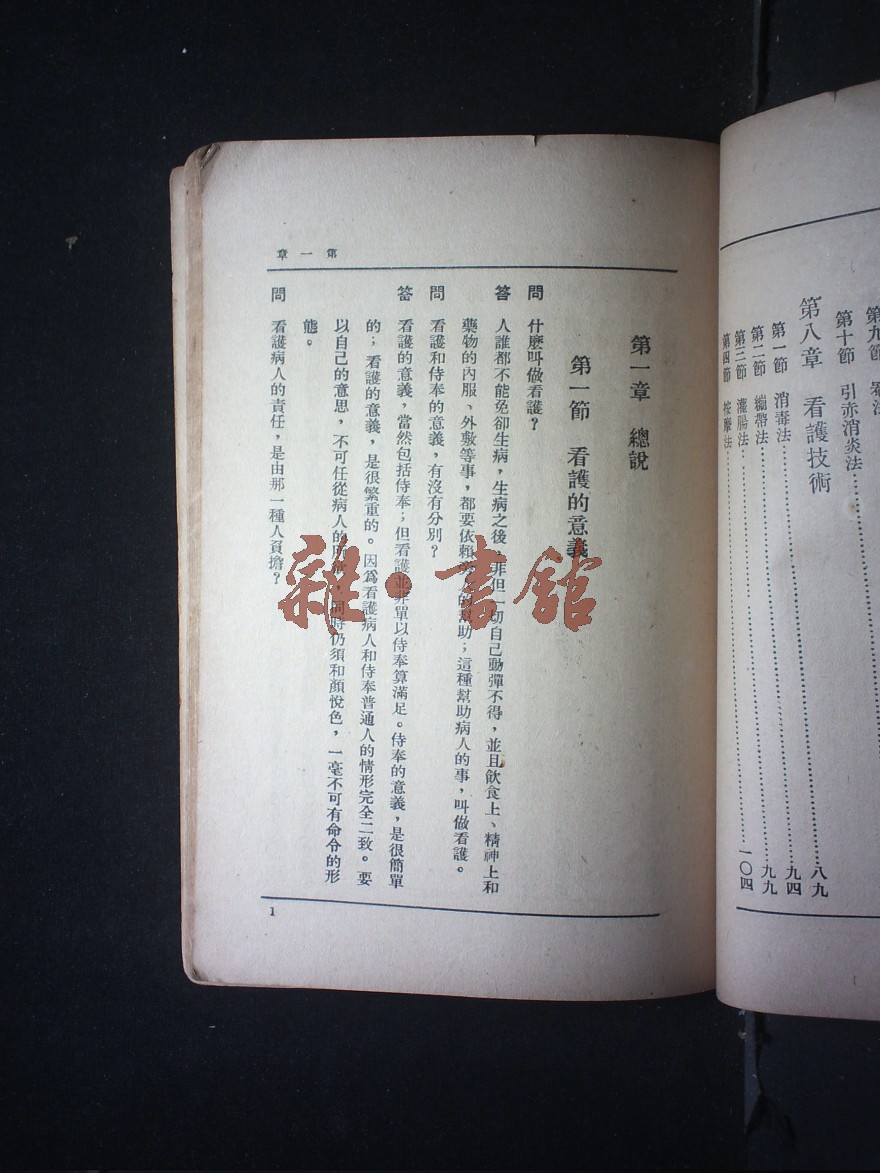 第九節
第十節 引赤消炎法
第八章 看護技術 八九
第一節 消毒法 九四
第二節 繃帶法 九九
第三節 灌腸法 一〇四
第四節 按摩法
第一章
第一章 總說
第一節 看護的意義
問 什麼叫做看護?
答 人誰都不能免卻生病,生病之後,非但一切自己動彈不得,並且飲食上、精神上和
藥物的內服、外敷等事,都要依賴旁人的幫助;這種幫助病人的事,叫做看護。
問 看護和侍奉的意義,有沒有分別?
答 看護的意義,當然包括侍奉;但看護並非單以侍奉算滿足。侍奉的意義,是很簡單
的;看護的意義,是很繁重的。因為看護病人和侍奉普通人的情形完全二致。要
以自己的意思,不可任從病人的所欲,同時仍須和顏悅色,一毫不可有命令的形
態。
問 看護病人的責任,是由那一種人負擔?
1
雜·書館